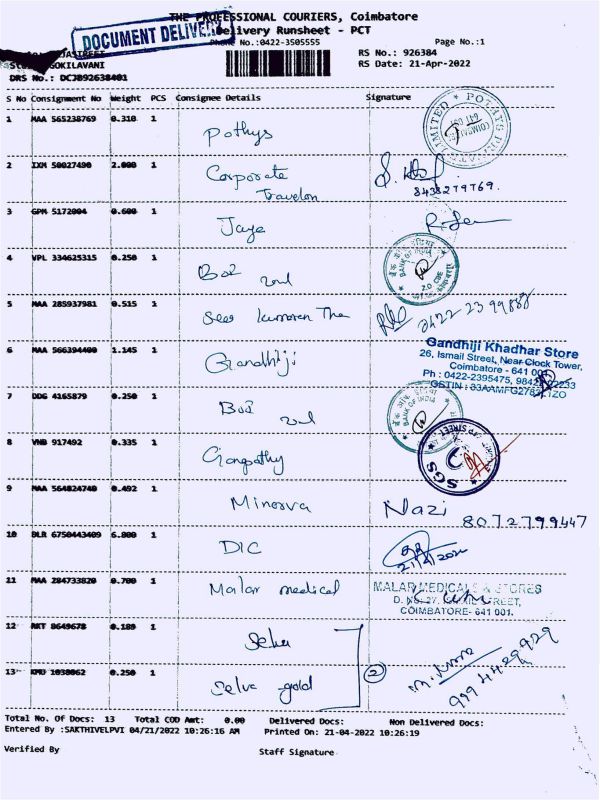 THE PROFESSIONAL COURIERS, Coimbatore
DOCUMENT DELIVERY
Delivery Runsheet - PCT
Phone No.:0422-3505555
Page No.:1
RS No.: 926384
GOKILAVANI
RS Date: 21-Apr-2022
DRS No.: DCJB92638401
S No Consignment No Weight PCS Consignee Details Signature
1 MAA 565238769 0.310 1 Pothys
POTHYS PRIVATE LIMITED
2 IXM 50027490 2.000 1 Corporate
Travelon
8438279769.
3 GPM 5172004 0.600 1 Jaya
4 VPL 334625315 0.250 1 BOI
BANK OF INDIA
5 MAA 285937981 0.515 1 Sree Kumaran The
0422 23 99888
6 MAA 566394400 1.145 1 Gandhiji
Gandhiji Khadhar Store
26, Ismail Street, Near Clock Tower,
Coimbatore - 641 001
Ph : 0422-2395475,
7 DDG 4165879 0.250 1 BOI
BANK OF INDIA
8 VNB 917492 0.335 1 Ganpathy
SGS
9 MAA 564824740 0.492 1 Minerva
Nazi 8072799447
10 BLR 6750443409 6.800 1 DIC
21/4/2022
11 MAA 284733820 0.700 1 Malar medical
MALAR MEDICALS & STORES
COIMBATORE- 641 001.
12 RKT 8649678 0.189 1 Selva
13 KMU 1038062 0.250 1 Selva gold
2
999 4429929
Total No. Of Docs: 13 Total COD Amt: 0.00 Delivered Docs: Non Delivered Docs:
Entered By :SAKTHIVELPVI 04/21/2022 10:26:16 AM Printed On: 21-04-2022 10:26:19
Verified By Staff Signature